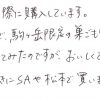 際に購入しています。
で、駒ヶ岳限定の巣ごもり
てみたのですが おいしくて
きにSAや松本で買います